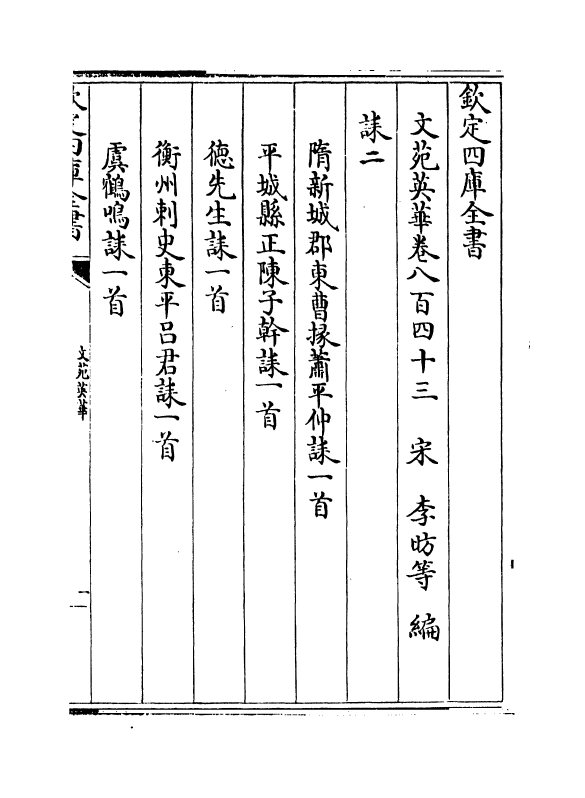 欽定四庫全書
文苑英華卷八百四十三 宋 李昉等 編
誄二
隋新城郡東曹掾蕭平仲誄一首
平城縣正陳子幹誄一首
德先生誄一首
衡州刺史東平呂君誄一首
虞鶴鳴誄一首
欽定四庫全書
文苑英華
一